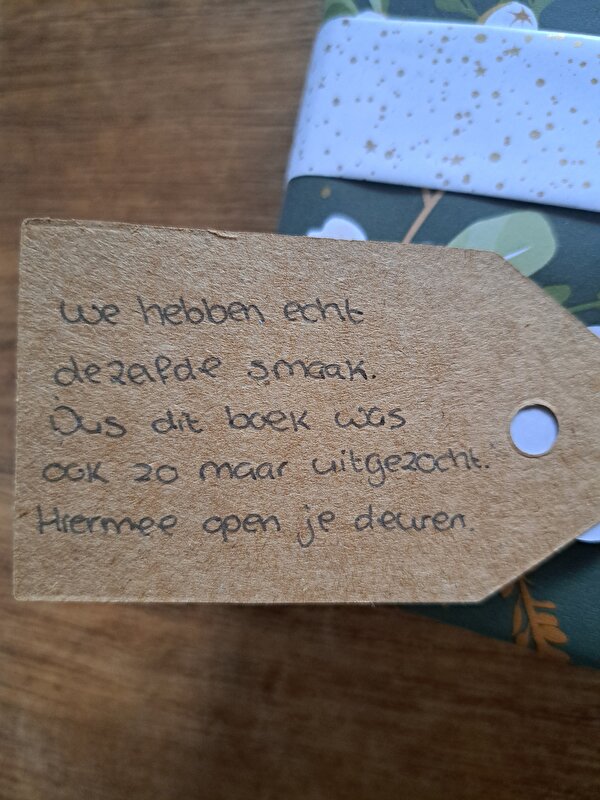 We hebben echt
dezelfde smaak.
Dus dit boek was
ook zo maar uitgezocht.
Hiermee open je deuren.